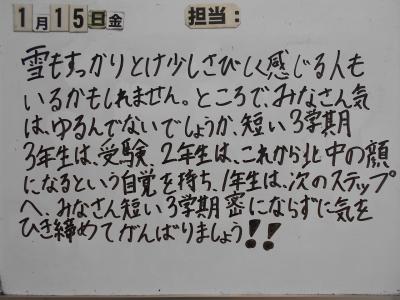 1月15日金 担当:
雪もすっかりとけ少しさびしく感じる人も
いるかもしれません。ところで、みなさん気
は、ゆるんでないでしょうか、短い3学期
3年生は、受験、2年生は、これから北中の顔
になるという自覚を持ち、1年生は、次のステップ
へ、みなさん短い3学期密にならずに気を
ひき締めてがんばりましょう!!